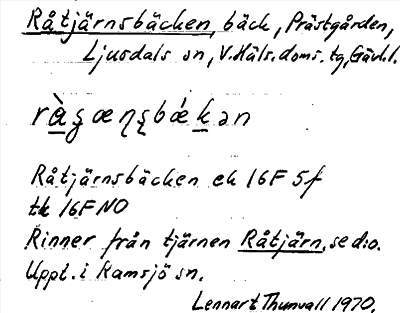 Råtjärnsbäcken, bäck, Prästgården,
Ljusdals sn, V.Häls.doms.tg, Gävl.l.
Råtjärnsbäcken ek 16F 5f
tk 16F NO
Rinner från tjärnen Råtjärn, se d:o.
Uppt. i Ramsjö sn.
Lennart Thunvall 1970.